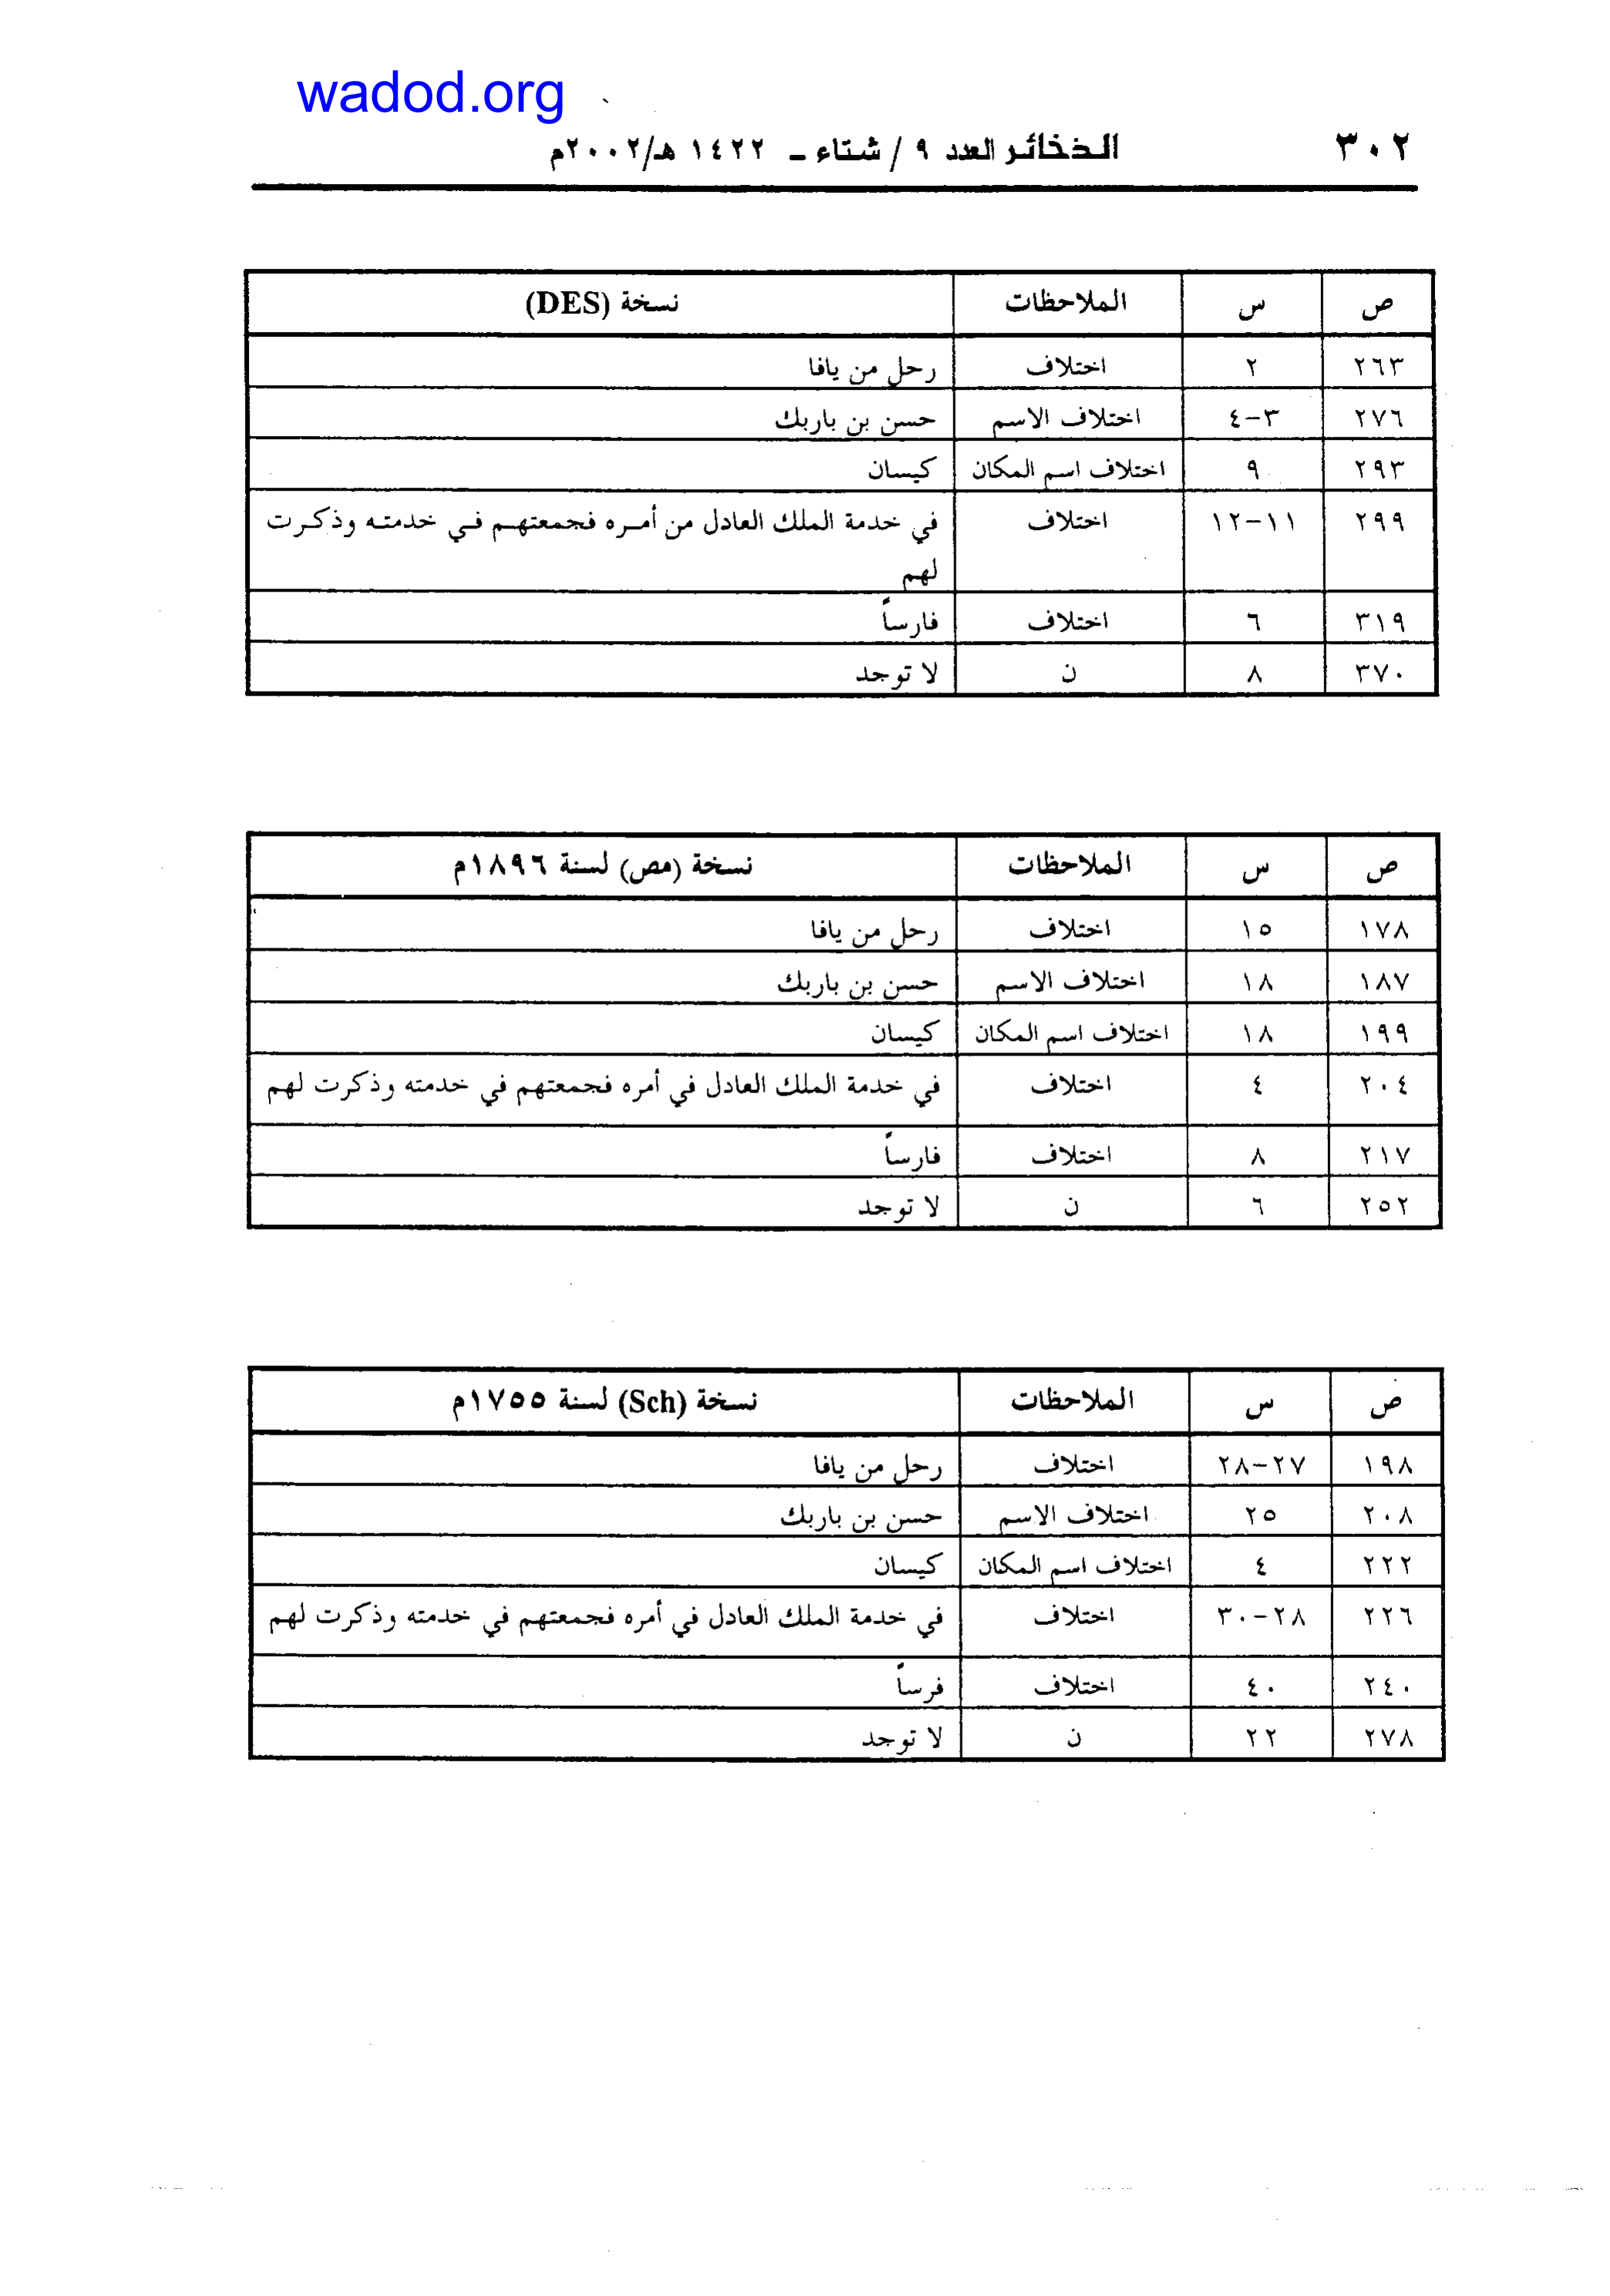 wadod.org
٣٠٢ الذخائر العدد ٩ / شتاء ـ ١٤٢٢ هـ/٢٠٠٢م
ص س الملاحظات نسخة (DES)
٢٦٣ ٢ اختلاف رحل من يافا
٢٧٦ ٣-٤ اختلاف الاسم حسن بن باربك
٢٩٣ ٩ اختلاف اسم المكان كيسان
٢٩٩ ١١-١٢ اختلاف في خدمة الملك العادل من أمره فجمعتهم في خدمته وذكرت
لهم
٣١٩ ٦ اختلاف فارساً
٣٧٠ ٨ ن لا توجد
ص س الملاحظات نسخة (مص) لسنة ١٨٩٦م
١٧٨ ١٥ اختلاف رحل من يافا
١٨٧ ١٨ اختلاف الاسم حسن بن باربك
١٩٩ ١٨ اختلاف اسم المكان كيسان
٢٠٤ ٤ اختلاف في خدمة الملك العادل في أمره فجمعتهم في خدمته وذكرت لهم
٢١٧ ٨ اختلاف فارساً
٢٥٢ ٦ ن لا توجد
ص س الملاحظات نسخة (Sch) لسنة ١٧٥٥م
١٩٨ ٢٧-٢٨ اختلاف رحل من يافا
٢٠٨ ٢٥ اختلاف الاسم حسن بن باربك
٢٢٢ ٤ اختلاف اسم المكان كيسان
٢٢٦ ٢٨-٣٠ اختلاف في خدمة الملك العادل في أمره فجمعتهم في خدمته وذكرت لهم
٢٤٠ ٤٠ اختلاف فرساً
٢٧٨ ٢٢ ن لا توجد